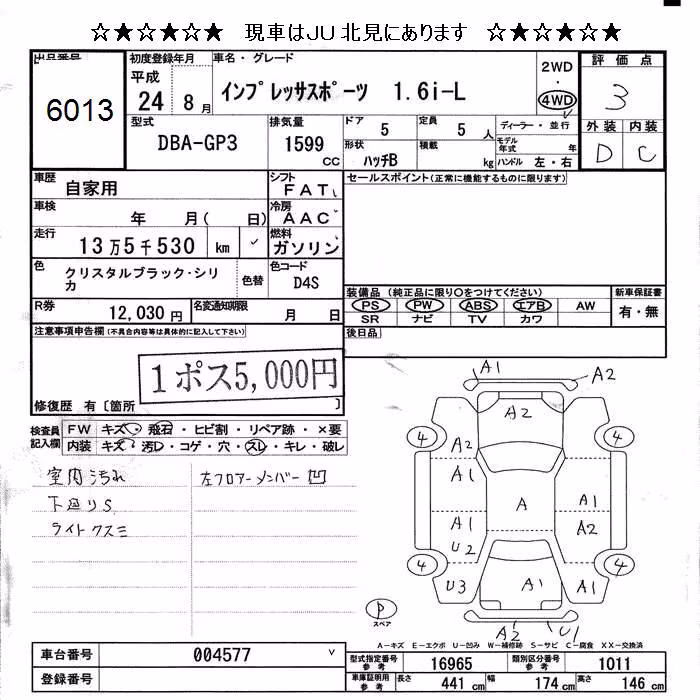 ☆★☆★☆★ 現車はJU北見にあります ☆★☆★☆★
出品番号 初度登録年月 車名・グレード 2WD ・ 4WD 評価点
6013 平成 24 8月 インプレッサスポーツ 1.6i-L 3
型式 排気量 ドア 定員 ディーラー・並行 外装 内装
DBA-GP3 1599 CC 5 5人 モデル年式 年 D C
形状 積載 ハンドル 左・右
ハッチB kg
車歴 自家用 シフト FAT セールスポイント(正常に機能するものに限ります)
車検 年 月( 日) 冷房 AAC
走行 13万5千530 km 燃料 ガソリン
色 クリスタルブラック・シリカ 色替 色コード D4S
装備品 (純正品に限り○をつけてください) 新車保証書
PS PW ABS エアB AW 有・無
SR ナビ TV カワ
R券 12,030円 名変通知期限 月 日
注意事項申告欄(不具合内容等は具体的に記入して下さい) 後日品
1ポス5,000円
修復歴 有〔箇所 〕
検査員記入欄 FW キズ・飛石・ヒビ割・リペア跡・×要
内装 キズ・汚レ・コゲ・穴・スレ・キレ・破レ
室内汚れ 左フロアーメンバー凹
下廻りS
ライトクスミ
A1 A2
A2
4 A2 4
A1
A A1
A1 A2
U2
4 4
U3 A1 A1
P スペア
A2 U1
A-キズ E-エクボ U-凹み W-補修跡 S-サビ C-腐食 XX-交換済
車台番号 004577 型式指定番号 参考 16965 類別区分番号 参考 1011
登録番号 車庫証明用 参考 長さ 441 cm 幅 174 cm 高さ 146 cm